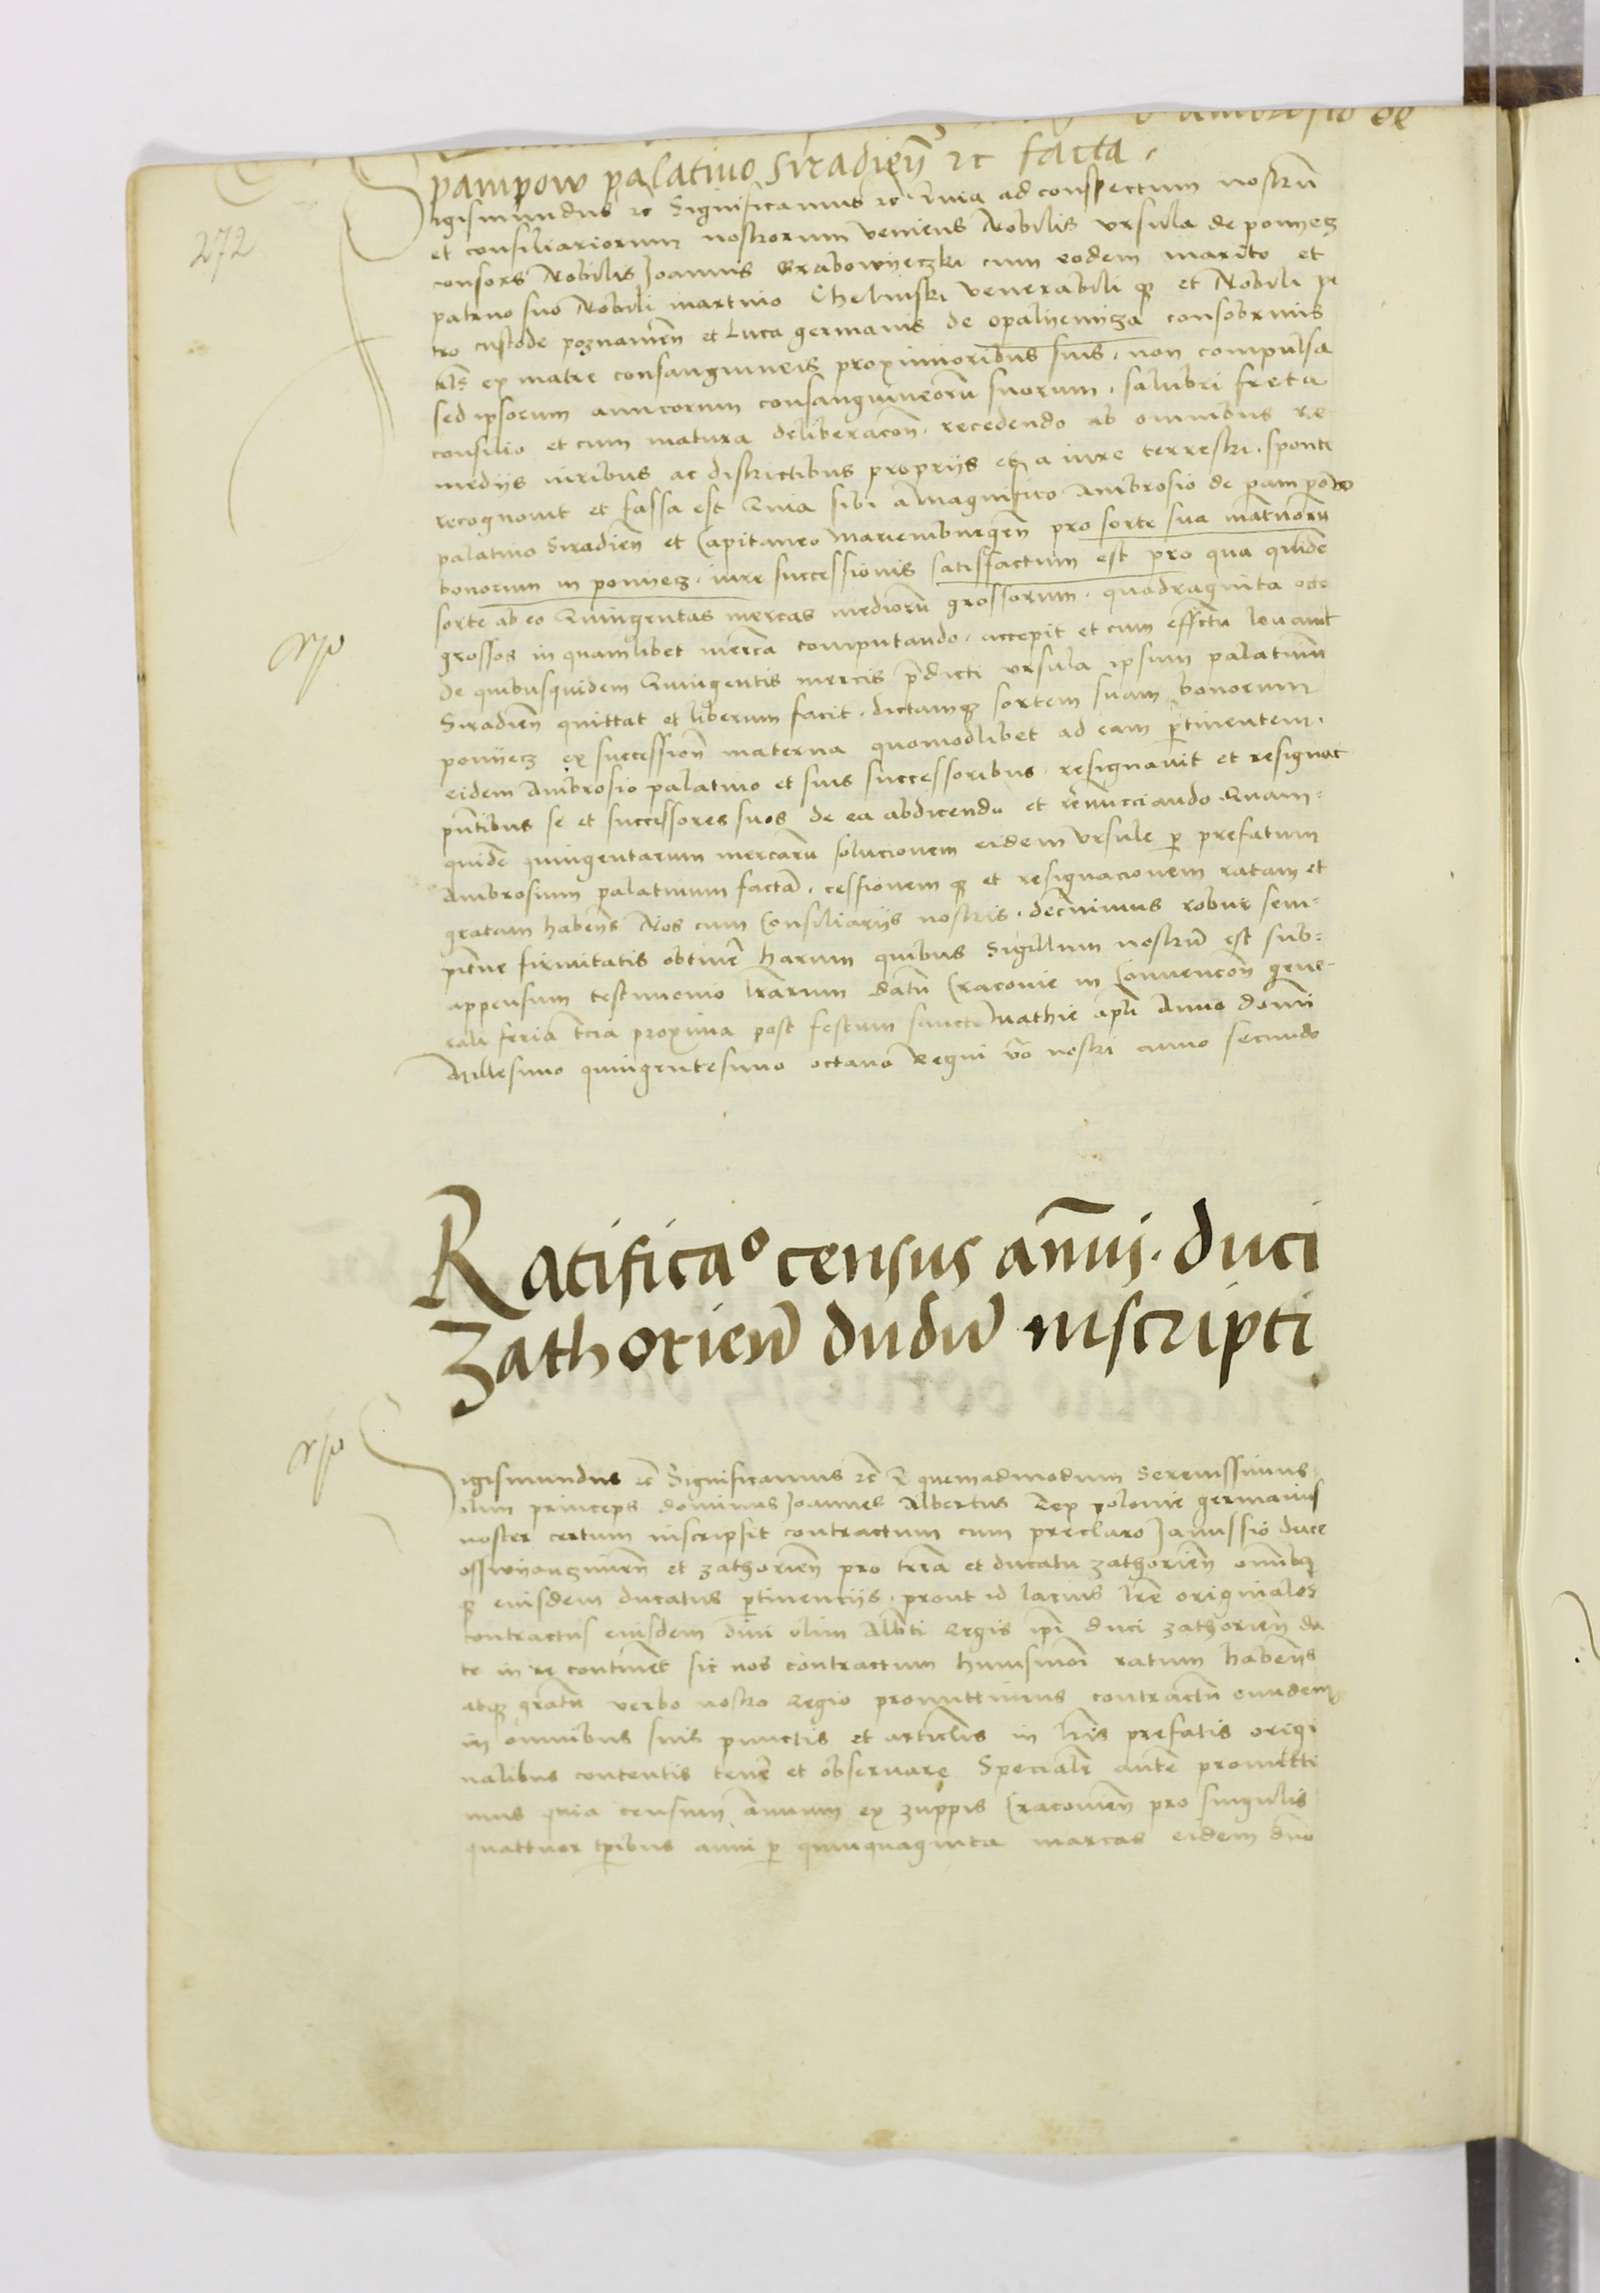 ambrosio de
pampow palatino Siradien̄ rc facta.
igismundus rc Significamus rc Quia ad conspectum nostrū
272
et consiliariorum nostrorum veniens Nobilis Vrsula de ponyecz
consors Nobilis Joannis Grabowyeczki cum eodem marito et
patruo suo Nobili martino Chelmski Venerabili q3 et Nobili pe
tro custode poznanien̄ et Luca germanis de opalyenycza consobrinis
ex matre consanguineis proximioribus suis, non compulsa
sed ipsorum amicorum consanguineorū suorum, salubri freta
consilio et cum matura deliberacōn, recedendo ab omnibus re
medijs iuribus ac districtibus proprijs et a iure terrestri, sponte
recognouit et fassa est Quia sibi a Magnifico Ambrosio de pampow
palatino Siradien̄ et Capitaneo Mariemburgen̄ pro sorte sua maternorū
bonorum in ponyecz, iure successionis satisfactum est pro qua quidē
sorte ab eo Quingentas mercas mediorū grossorum, quadraginta octo
grossos in quamlibet mercā computando, accepit et cum effectu leuauit
de quibusquidem Quingentis mercis p̄dicti Vrsula ipsum palatinū
Siradien̄ quittat et liberum facit, dictamq3 sortem suam bonorum
ponyecz ex successiōn materna quomodlibet ad eam p̄tinentem,
eidem Ambrosio palatino et suis successoribus, resignauit et resignat
pn̄tibus se et successores suos de ea abdicendo et renucciando Quam-
quidē quingentarum mercarū solucionem eidem Vrsule p̄ prefatum
Ambrosium palatinum factā, cessionem q3 et resignacionem ratam et
gratam habens Nos cum Consiliarijs nostris, decernimus robur sem-
piterne firmitatis obtinē harum quibus Sigillum nostrū est sub-
appensum testimonio lr̄arum datū Cracouie in Conuencōn gene-
rali feria tcia proxima post festum sancti Mathie apl̄i Anno domi
Millesimo quingentesimo octauo Regni v̄o nostri anno secundo
Ratificaᵒ census an̄ui. duci
Zathorien̄ dudū inscripti
igismundus rc̄ Significamus rc̄ Q quemadmodum Serenissimus
olim princeps dominus Joannes Albertus Rex polonie germanus
noster certum inscripsit contractum cum preclaro Janussio duce
osswyanczimen̄ et zathorien̄ pro tr̄ra et ducatu zathorien̄ omībq3
q3 eiusdem ducatus p̄tinencijs, prout id lacius lr̄e originales
contractus eiusdem dn̄i olim Albti Regis ip̄i duci zathorien̄ da
te in se continēt sic nos contractum huiusmōi ratum habens
atq3 gratū verbo nostro Regio promittimus contractū eundem
in omnibus suis punctis et articulis in lr̄is prefatis origi
nalibus contentis tenē et obseruare Specialē autē promitti
mus quia censum an̄uum ex zuppis Cracouien̄ pro singulis
quattuor tp̄ibus anni p̄ quinquaginta marcas eidem duo